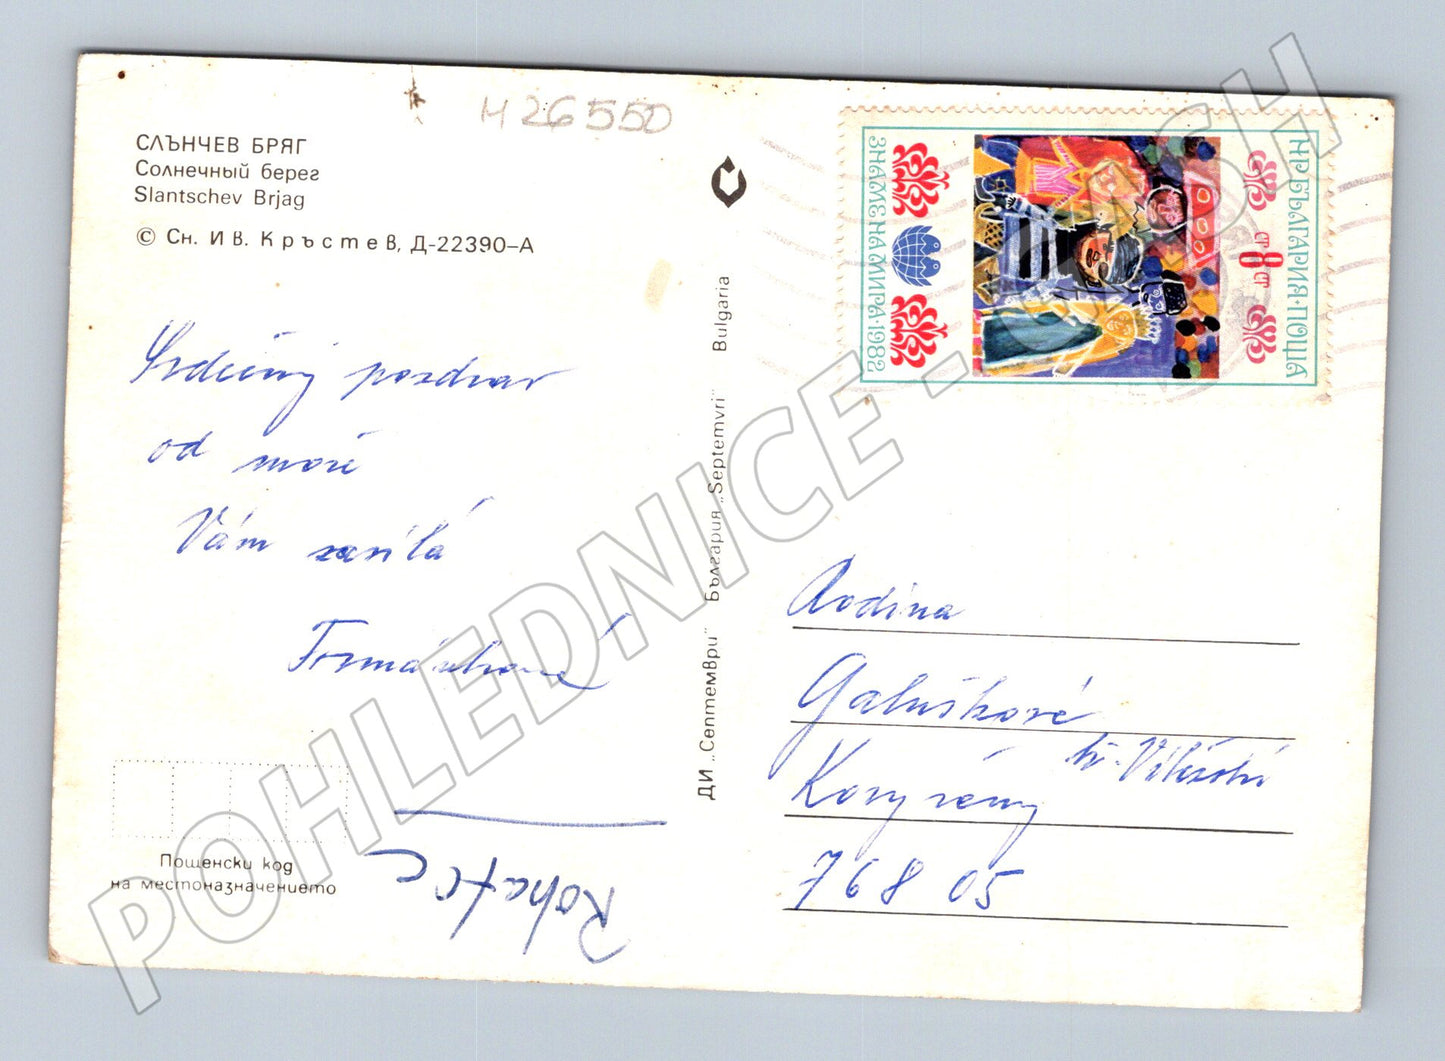 H26550
СЛЪНЧЕВ БРЯГ
Солнечный берег
Slantschev Brjag
© Сн. Ив. Кръстев, Д-22390-А
Srdečný pozdrav
od moře
Vám zasílá
ДИ „Септември" България „Septemvri" Bulgaria
НР БЪЛГАРИЯ·ПОЩА
СТ 8 СТ
ЗНАМЕ НА МИРА·1982
Rodina
Galušková
Koryčany
768 05
Пощенски код
на местоназначението
Rohatec
POHLEDNICE - CASH